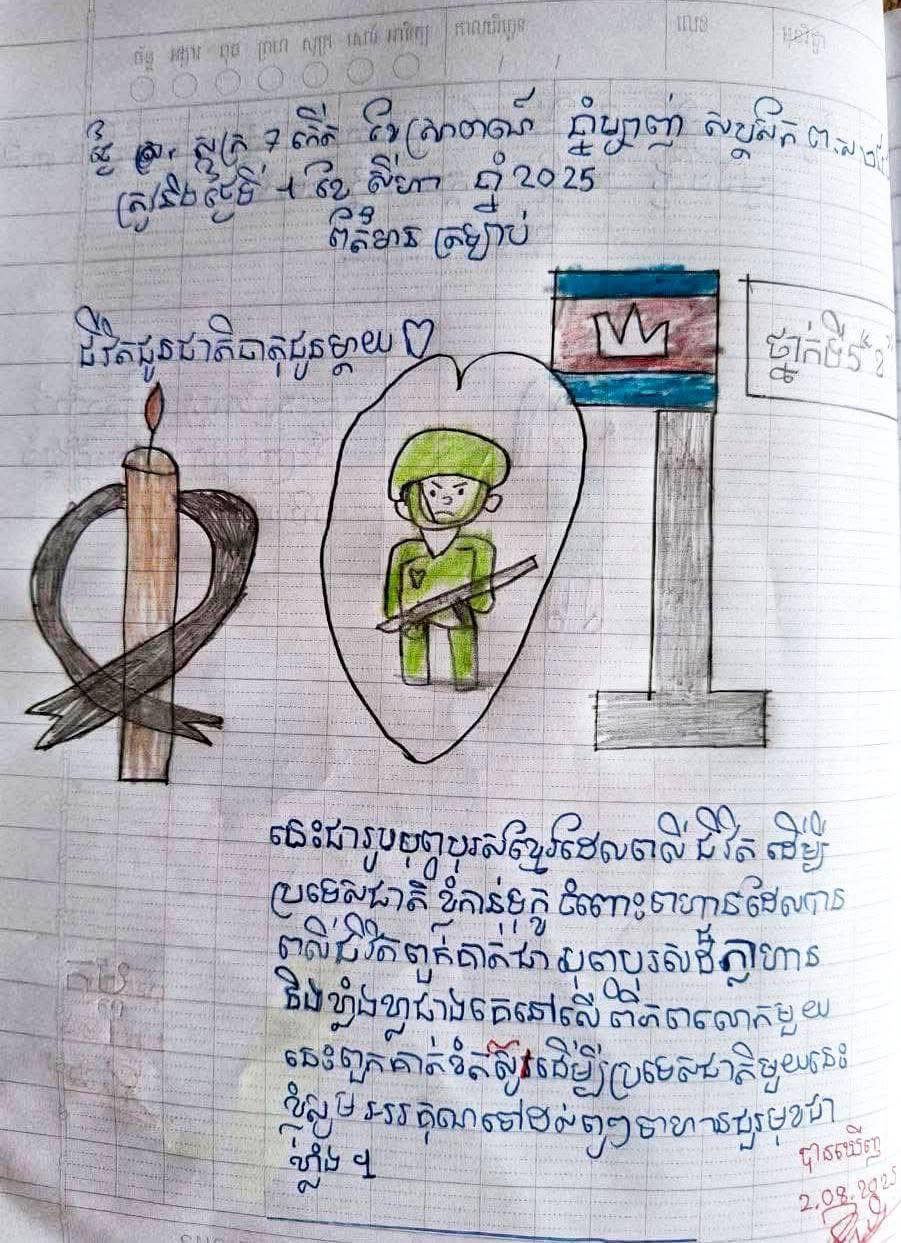 ច័ន្ទ អង្គារ ពុធ ព្រហ សុក្រ សៅរ៍ អាទិត្យ
កាលបរិច្ឆេទ
លេខ
មុខវិជ្ជា
ថ្ងៃ សុក្រ 7 កើត ខែ ស្រាពណ៍ ឆ្នាំម្សាញ់ សប្តស័ក ព.ស
ត្រូវនឹងថ្ងៃទី 1 ខែ សីហា ឆ្នាំ 2025
ព័ត៌មាន ត្រឡប់
ជីវិតជូនជាតិធាតុជូនម្តាយ
ថ្នាក់ទី
នេះជារូបបុព្វបុរសខ្មែរដែលពលី ជីវិត ដើម្បី
ប្រទេសជាតិ ខ្ញុំកាន់ទុក្ខ ចំពោះទាហានដែលបាន
ពលីជីវិតពួកគាត់ជា បុព្វបុរសដ៏ក្លាហាន
និងខ្លាំងក្លាជាងគេនៅលើ ពិភពលោកមួយ
នេះពួកគាត់ខំតស៊ូដើម្បីប្រទេសជាតិមួយនេះ
ខ្ញុំសូមអរគុណទៅដល់ពូៗទាហានជួរមុខជា
ខ្លាំង ។
បានឃើញ
2.08.2025